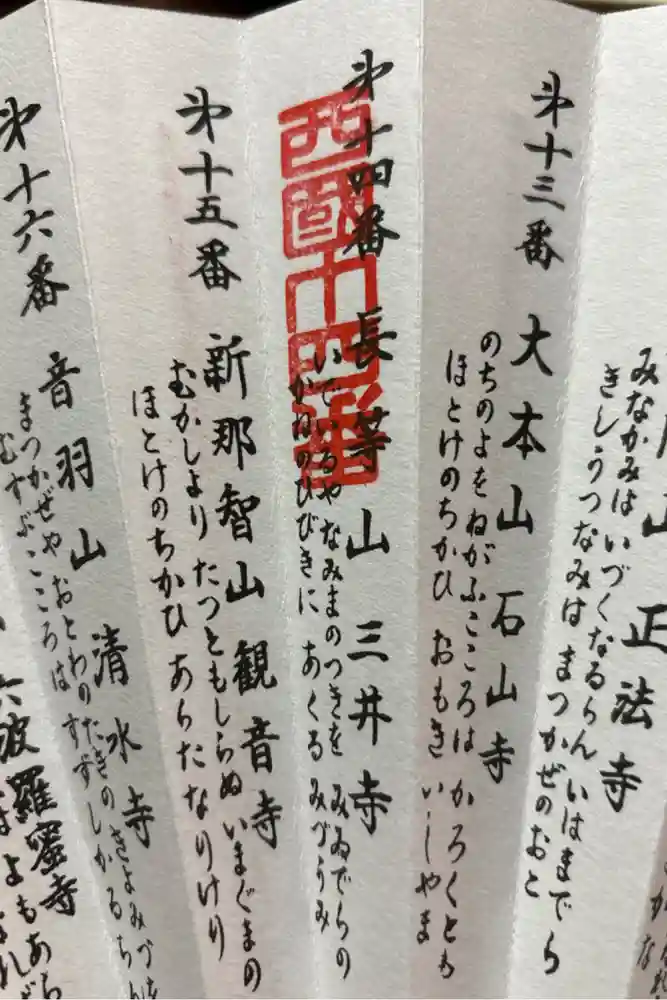 山 正法寺
みなかみは いづくなるらん いはまでら
きしうつなみは まつかぜのおと
第十三番 大本山 石山寺
のちのよを ねがふこころは かろくとも
ほとけのちかひ おもき いしやま
第十四番 長等山 三井寺
いでいるや なみまのつきを みゐでらの
かねのひびきに あくる みづうみ
西國十四番
第十五番 新那智山 観音寺
むかしより たつともしらぬ いまぐまの
ほとけのちかひ あらたなりけり
第十六番 音羽山 清水寺
まつかぜや おとわのたきの きよみづを
むすぶこころは すずしかるらん
六波羅蜜寺